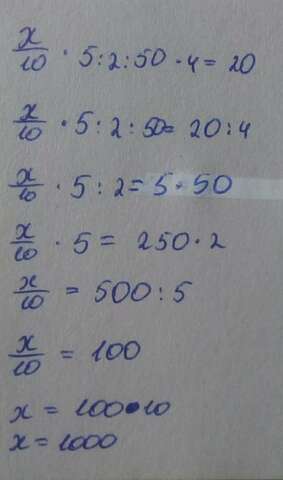 x/10 · 5 : 2 : 50 · 4 = 20
x/10 · 5 : 2 : 50 = 20 : 4
x/10 · 5 : 2 = 5 · 50
x/10 · 5 = 250 · 2
x/10 = 500 : 5
x/10 = 100
x = 100 · 10
x = 1000